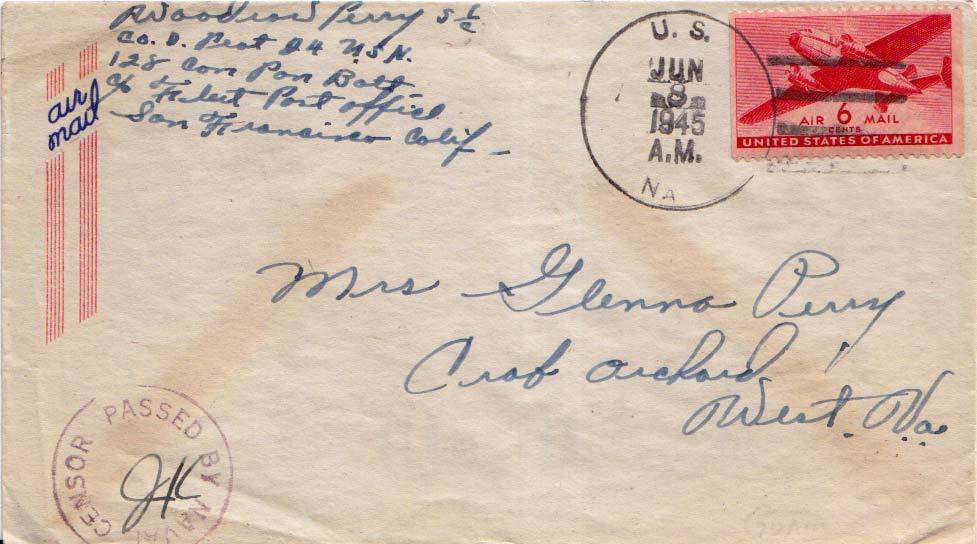 Woodrow Perry S 1/c
Co. D. Plat 24 U.S.N.
128 Con Pon Batt
c/o Fleet Post Office
San Francisco Calif -
air
mail
U. S.
JUN
8
1945
A.M.
NA
AIR 6 MAIL
CENTS
UNITED STATES OF AMERICA
Mrs Glenna Perry
Crab Orchard
West. Va.
PASSED BY NAVAL CENSOR
JK